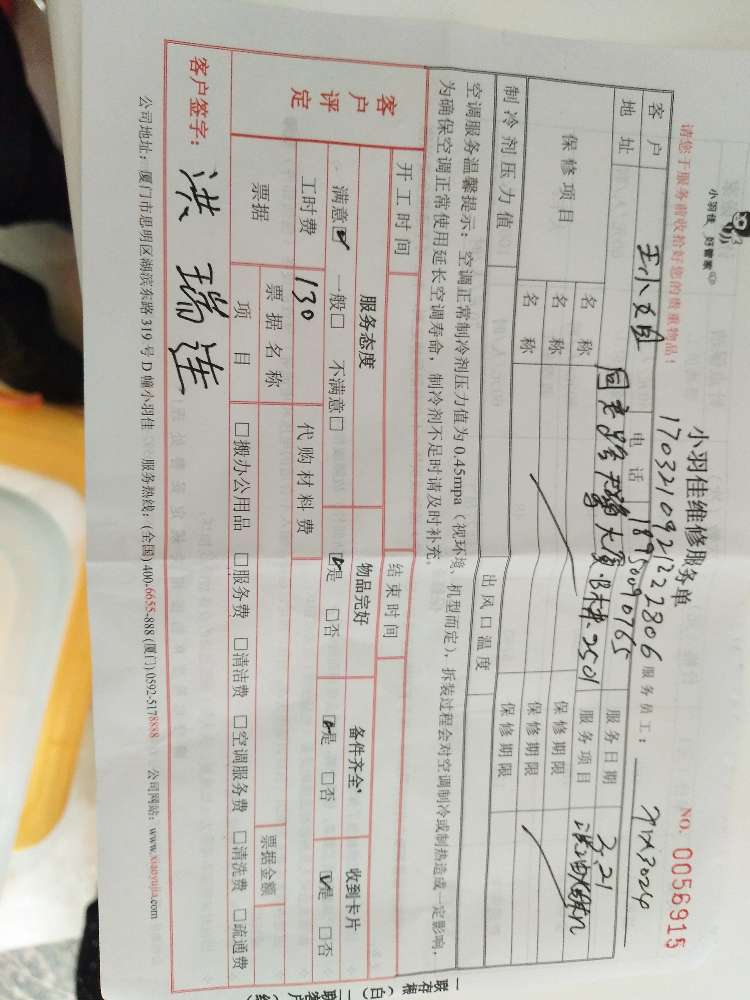 小羽佳 好管家
小羽佳维修服务单
NO. 0056915
请您于服务前收拾好您的贵重物品!
17032109212222806
服务员工:
客户
电话 18950090765
服务日期 3.21
地址
大厦
2501
服务项目
保修项目
名称
保修期限
名称
保修期限
名称
保修期限
制冷剂压力值
出风口温度
空调服务温馨提示:空调正常制冷剂压力值为0.45mpa(视环境、机型而定),拆装过程会对空调制冷或制热造成一定影响,
为确保空调正常使用延长空调寿命,制冷剂不足时请及时补充。
开工时间
结束时间
客户评定
服务态度
物品完好
备件齐全
收到卡片
满意☑ 一般□ 不满意□
☑是 □否
☑是 □否
☑是 □否
工时费 130
代购材料费
票据
票据名称
票据金额
项目 □搬办公用品 □服务费 □清洁费 □空调服务费 □清洗费 □疏通费
客户签字: 洪瑞莲
公司地址:厦门市思明区湖滨东路319号D幢小羽佳 服务热线:(全国)400-6655-888 (厦门)0592-5178888 公司网站:www.xiaoyujia.com